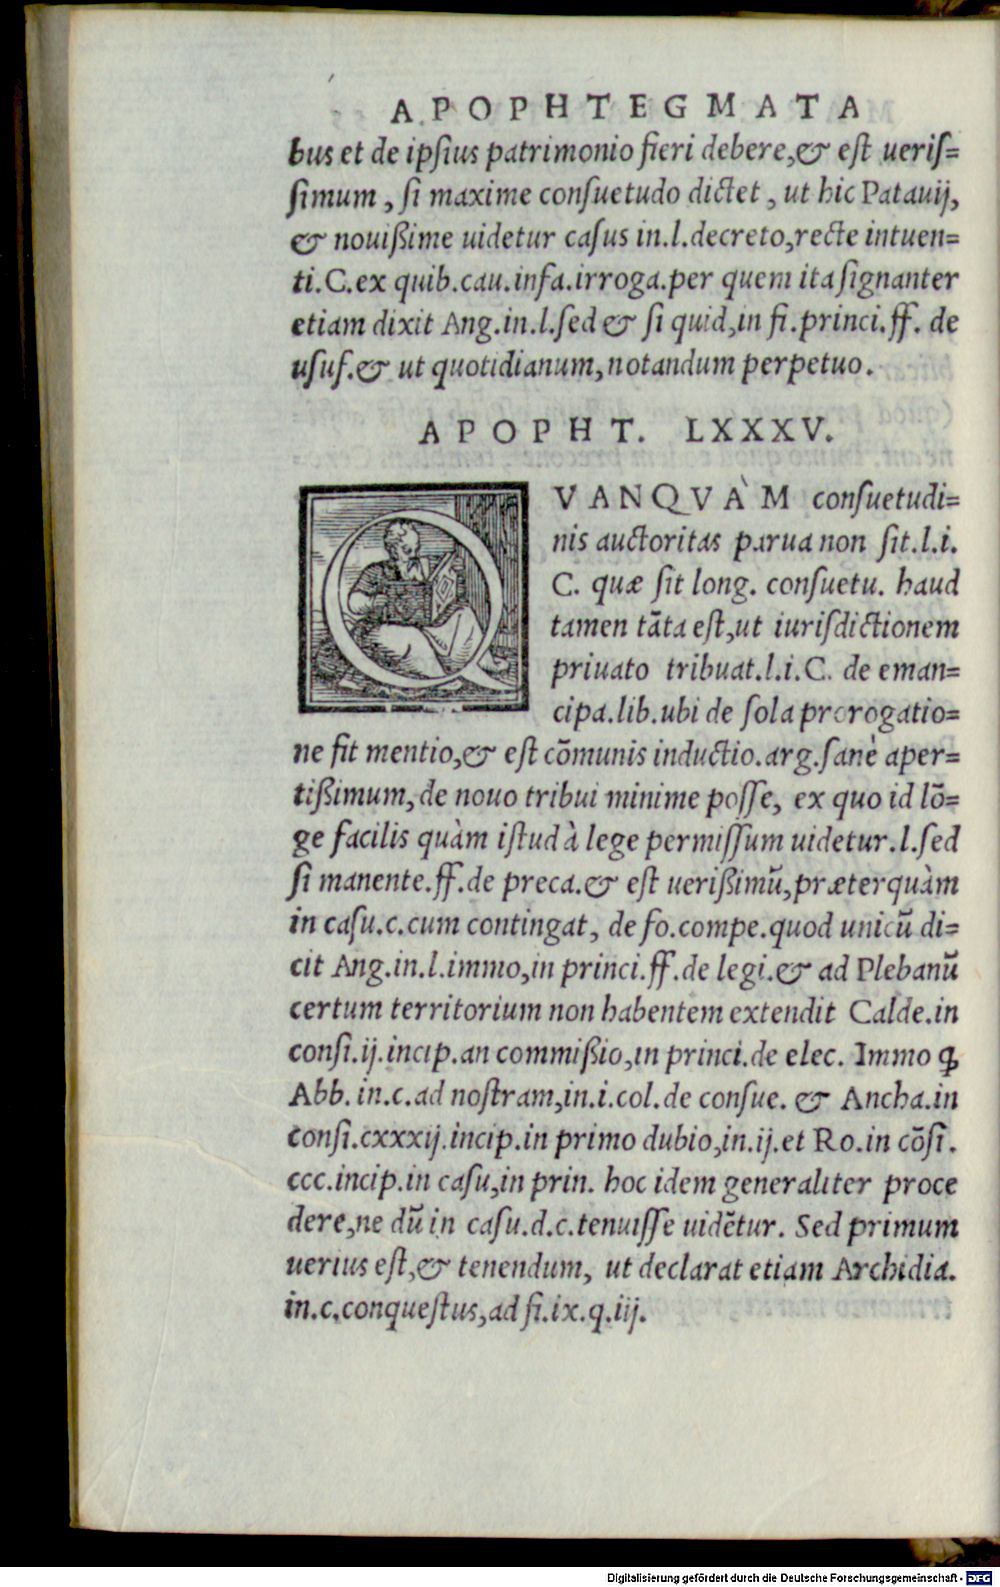 APOPHTEGMATA
bus et de ipsius patrimonio fieri debere,& est ueris=
simum, si maxime consuetudo dictet, ut hic Patauij,
& nouißime uidetur casus in.l.decreto,recte intuen=
ti.C.ex quib.cau.infa.irroga.per quem ita signanter
etiam dixit Ang.in.l.sed & si quid,in fi.princi.ff. de
usuf.& ut quotidianum,notandum perpetuo.
APOPHT. LXXXV.
QVANQVÀM consuetudi=
nis auctoritas parua non sit.l.i.
C. quæ sit long. consuetu. haud
tamen tāta est,ut iurisdictionem
priuato tribuat.l.i.C. de eman=
cipa.lib.ubi de sola prorogatio=
ne fit mentio,& est cōmunis inductio.arg.sanè aper=
tißimum,de nouo tribui minime posse, ex quo id lō=
ge facilis quàm istud à lege permissum uidetur.l.sed
si manente.ff.de preca.& est uerißimū,præterquàm
in casu.c.cum contingat, de fo.compe.quod unicū di=
cit Ang.in.l.immo,in princi.ff.de legi.& ad Plebanū
certum territorium non habentem extendit Calde.in
consi.ij.incip.an commißio,in princi.de elec. Immo ꝙ
Abb. in.c.ad nostram,in.i.col.de consue. & Ancha.in
consi.cxxxij.incip.in primo dubio,in.ij.et Ro.in cōsī.
ccc.incip.in casu,in prin. hoc idem generaliter proce
dere,ne dū in casu.d.c.tenuisse uidētur. Sed primum
uerius est,& tenendum, ut declarat etiam Archidia.
in.c.conquestus,ad fi.ix.q.iij.
Digitalisierung gefördert durch die Deutsche Forschungsgemeinschaft - DFG